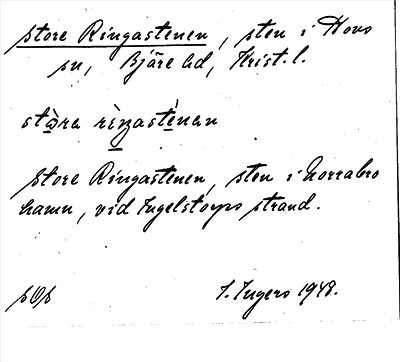 store Ringastenen, sten i Hovs
sn, Bjäre hd, Krist. l.
stɷ̀ra rìŋasténan
store Ringastenen, sten i Norrebro
hamn, vid Ingelstorps strand.
sOs J. Ingers 1948.